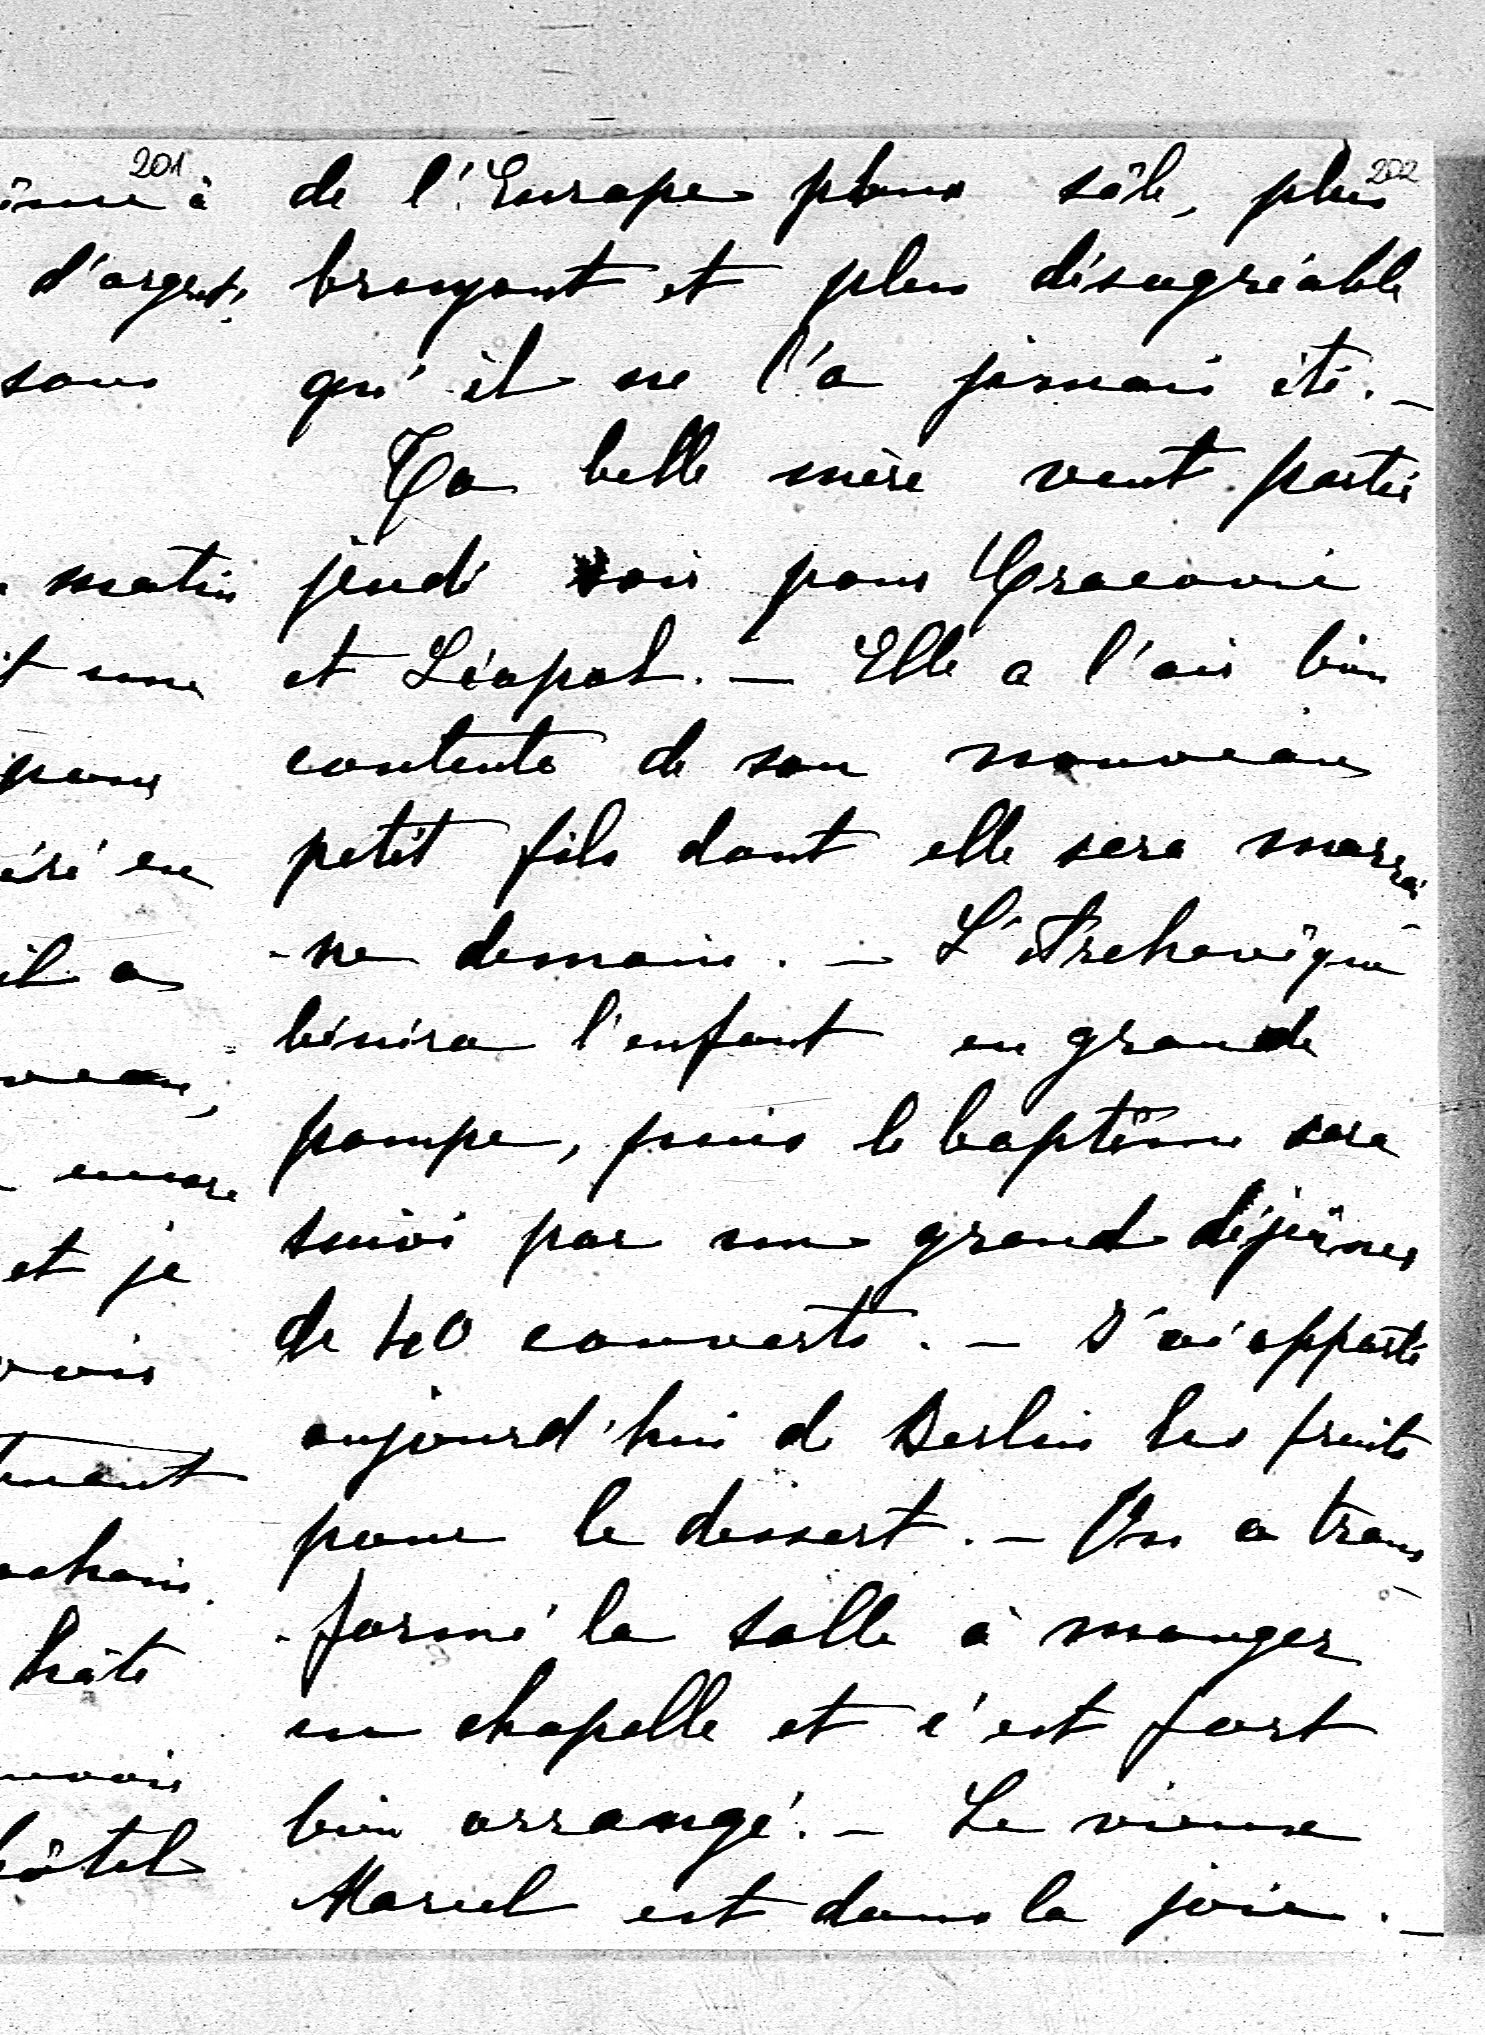 201
ême à
d'argent!
sans
matin
t une
pour
éré en
il a
veau,
encore
et je
vois
ment
ochain
hâte
avoir
hôtel
202
de l'Europe plus sâle, plus
bruyant et plus désagréable
qu'il ne l'a jamais été. —
Ta belle mère veut partir
jeudi soir pour Cracovie
et Léopol. — Elle a l'air bien
contente de son nouveau
petit fils dont elle sera marrai
-ne demain. — L'Archevêque
bénira l'enfant en grande
pompe, puis le baptême sera
suivi par un grand déjeûner
de 40 couverts. — J'ai apporté
aujourd'hui de Berlin les fruits
pour le dessert. — On a trans
-formé la salle à manger
en chapelle et c'est fort
bien arrangé. — Le vieux
Marcel est dans la joie. —